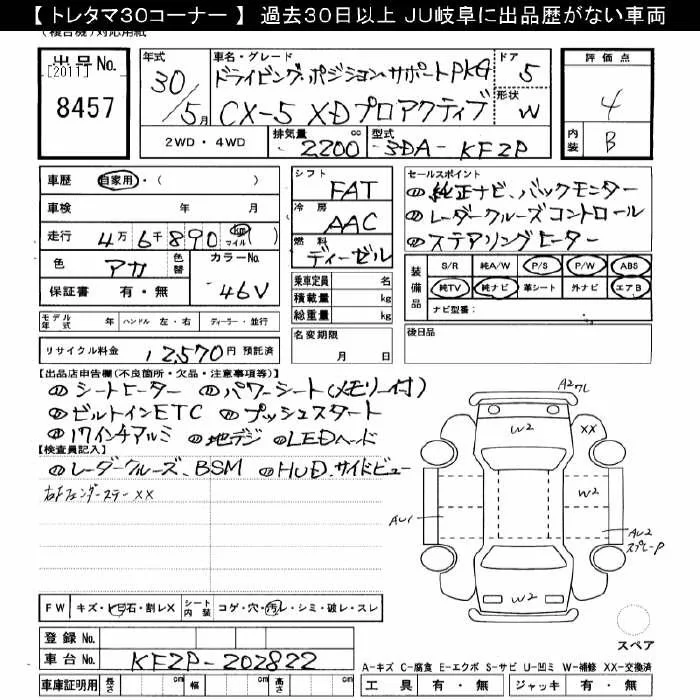 【 トレタマ30コーナー 】 過去30日以上 JU岐阜に出品歴がない車両
出品No.
[2011]
8457
年式
30/5月
車名・グレード
ドライビング・ポジションサポートPKG
CX-5 XDプロアクティブ
ドア
5
形状
W
評価点
4
内装
B
2WD・4WD
排気量
2200
cc
型式
3DA-KF2P
車歴
自家用・( )
車検 年 月
走行 4万6千890 km マイル
色 アカ 色替
カラーNo.
46V
保証書 有・無
モデル年式 年 ハンドル 左・右 ディーラー・並行
リサイクル料金 12,570円 預託済
シフト
FAT
冷房
AAC
燃料
ディーゼル
乗車定員 名
積載量 kg
総重量 kg
名変期限
月 日
セールスポイント
純正ナビ、バックモニター
レーダークルーズコントロール
ステアリングヒーター
装備品
S/R 純A/W P/S P/W ABS
純TV 純ナビ 革シート 外ナビ エアB
ナビ型番:
後日品
【出品店申告欄(不良箇所・欠品・注意事項等)】
シートヒーター パワーシート(メモリー付)
ビルトインETC プッシュスタート
17インチアルミ 地デジ LEDヘッド
【検査員記入】
レーダークルーズ、BSM HUD、サイドビュー
右Fフェンダーステー XX
A2
7L
W2
XX
W2
AU1
AU2
スプレーP
W2
スペア
FW キズ・ヒ・飛石・割レX
シート内装 コゲ・穴・汚レ・シミ・破レ・スレ
登録No.
車台No. KF2P-202822
車庫証明用 長さ cm 幅 cm 高さ cm
A-キズ C-腐食 E-エクボ S-サビ U-凹ミ W-補修 XX-交換済
工具 有・無 ジャッキ 有・無